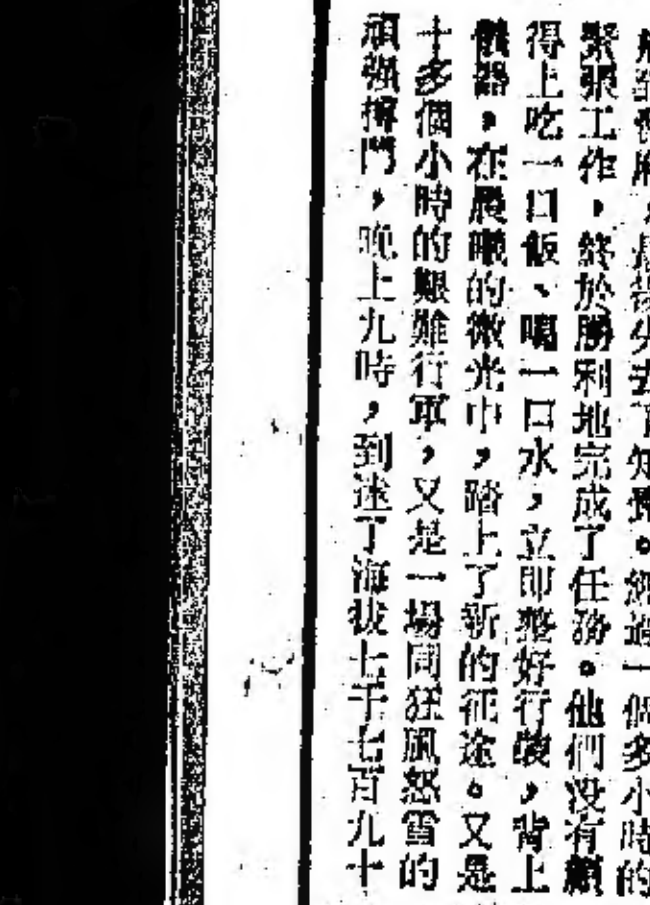 緊張工作，終於勝利地完成了任務。他們没有顧
得上吃一口飯、喝一口水，立即整好行裝，背上
儀器，在晨曦的微光中，踏上了新的征途。又是
十多個小時的艱難行軍，又是一場同狂風怒雪的
頑强搏鬥，晚上九時，到達了海拔七千七百九十